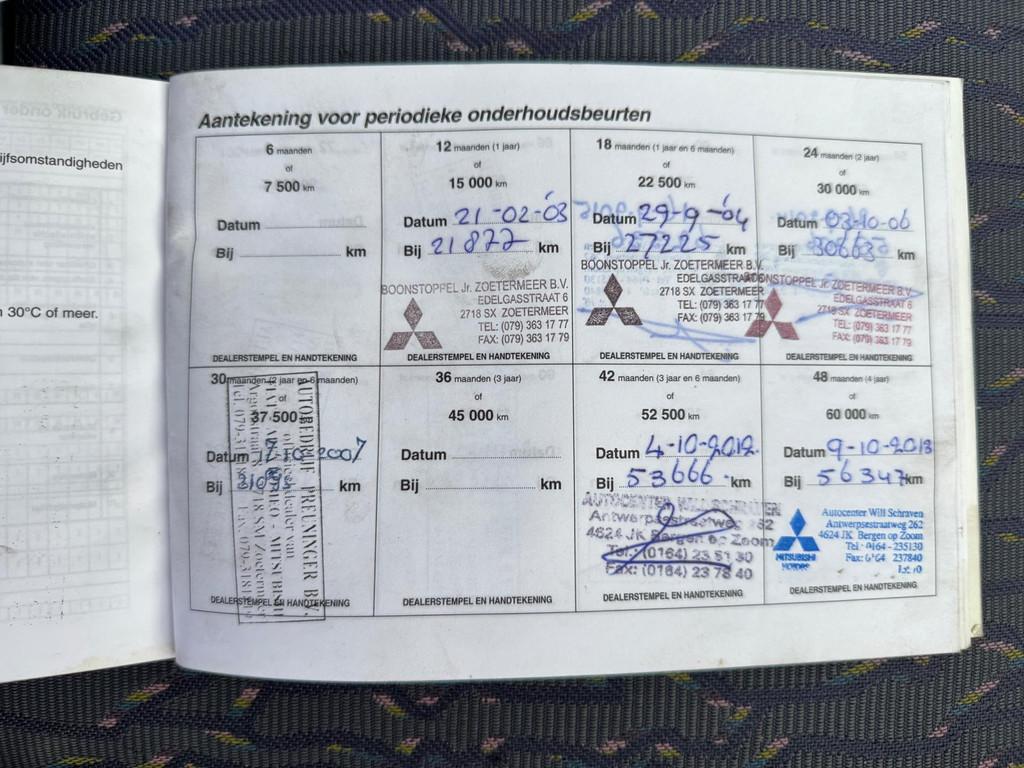 ijfsomstandigheden
n 30°C of meer.
Aantekening voor periodieke onderhoudsbeurten
6 maanden
of
7 500 km
Datum
Bij km
DEALERSTEMPEL EN HANDTEKENING
12 maanden (1 jaar)
of
15 000 km
Datum 21-02-03
Bij 21877 km
BOONSTOPPEL Jr. ZOETERMEER B.V.
EDELGASSTRAAT 6
2718 SX ZOETERMEER
TEL: (079) 363 17 77
FAX: (079) 363 17 79
DEALERSTEMPEL EN HANDTEKENING
18 maanden (1 jaar en 6 maanden)
of
22 500 km
Datum 29-9-04
Bij 27225 km
BOONSTOPPEL Jr. ZOETERMEER B.V.
EDELGASSTRAAT 6
2718 SX ZOETERMEER
TEL: (079) 363 17 77
FAX: (079) 363 17 79
DEALERSTEMPEL EN HANDTEKENING
24 maanden (2 jaar)
of
30 000 km
Datum 03-10-06
Bij km
BOONSTOPPEL Jr. ZOETERMEER B.V.
EDELGASSTRAAT 6
2718 SX ZOETERMEER
TEL: (079) 363 17 77
FAX: (079) 363 17 79
DEALERSTEMPEL EN HANDTEKENING
30 maanden (2 jaar en 6 maanden)
of
37 500 km
Datum 17-10-2007
Bij km
AUTOBEDRIJF PREUNINGER B.V.
DEALERSTEMPEL EN HANDTEKENING
36 maanden (3 jaar)
of
45 000 km
Datum
Bij km
DEALERSTEMPEL EN HANDTEKENING
42 maanden (3 jaar en 6 maanden)
of
52 500 km
Datum 4-10-2012
Bij 53666 km
AUTOCENTER WILL SCHRAVEN
Antwerpsestraatweg 262
4624 JK Bergen op Zoom
Tel.: (0164) 23 51 30
Fax: (0164) 23 78 40
DEALERSTEMPEL EN HANDTEKENING
48 maanden (4 jaar)
of
60 000 km
Datum 9-10-2013
Bij 56347 km
Autocenter Will Schraven
Antwerpsestraatweg 262
4624 JK Bergen op Zoom
Tel: 0164 - 235130
Fax: 0164 237840
MITSUBISHI
MOTORS
DEALERSTEMPEL EN HANDTEKENING